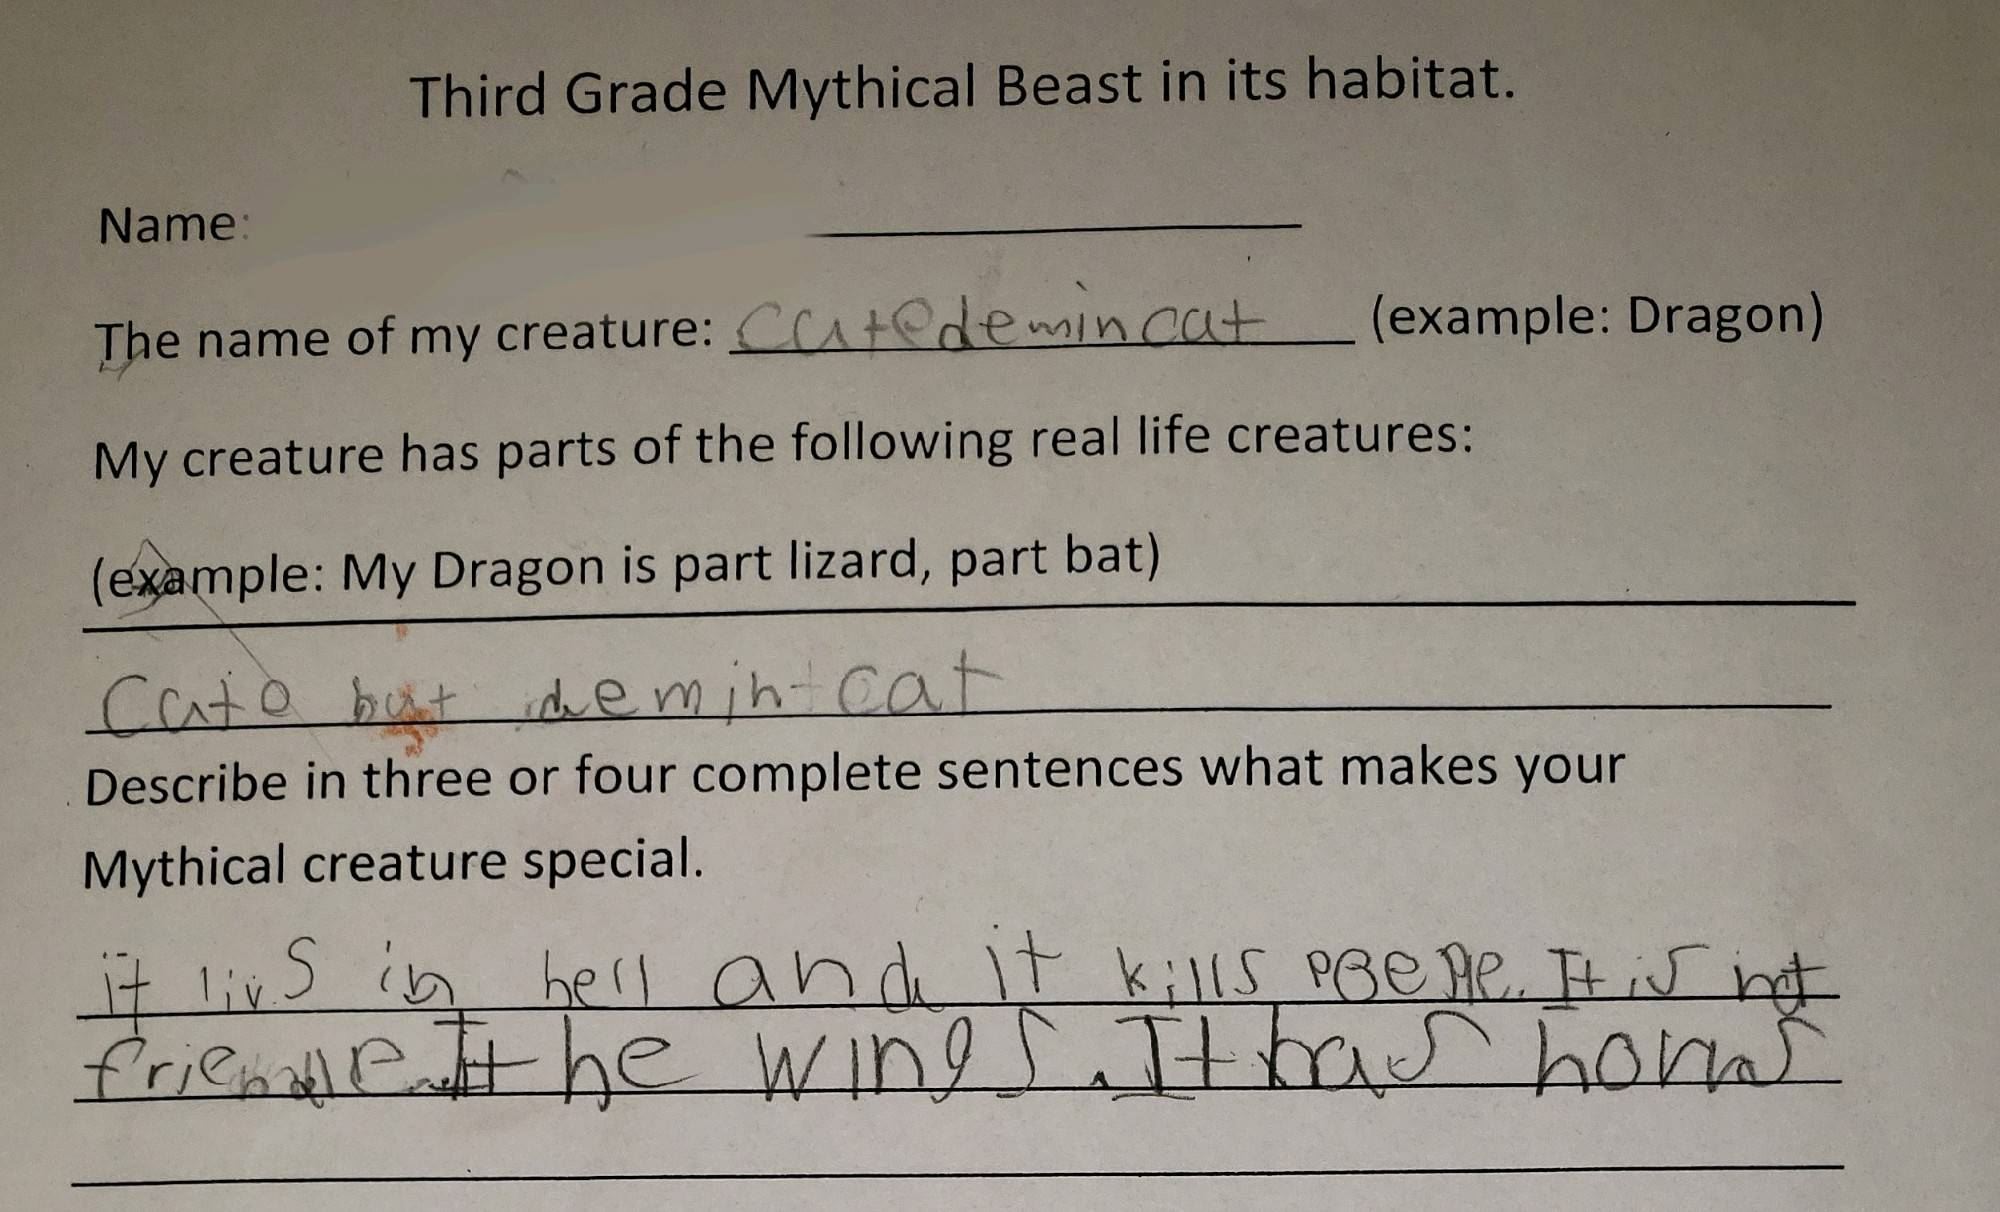 Third Grade Mythical Beast in its habitat.
Name:
The name of my creature: Cutedemin cat (example: Dragon)
My creature has parts of the following real life creatures:
(example: My Dragon is part lizard, part bat)
Cute but demin cat
Describe in three or four complete sentences what makes your
Mythical creature special.
it livs in hell and it kills peeple. It is not
friendle. It he wings. It has horns